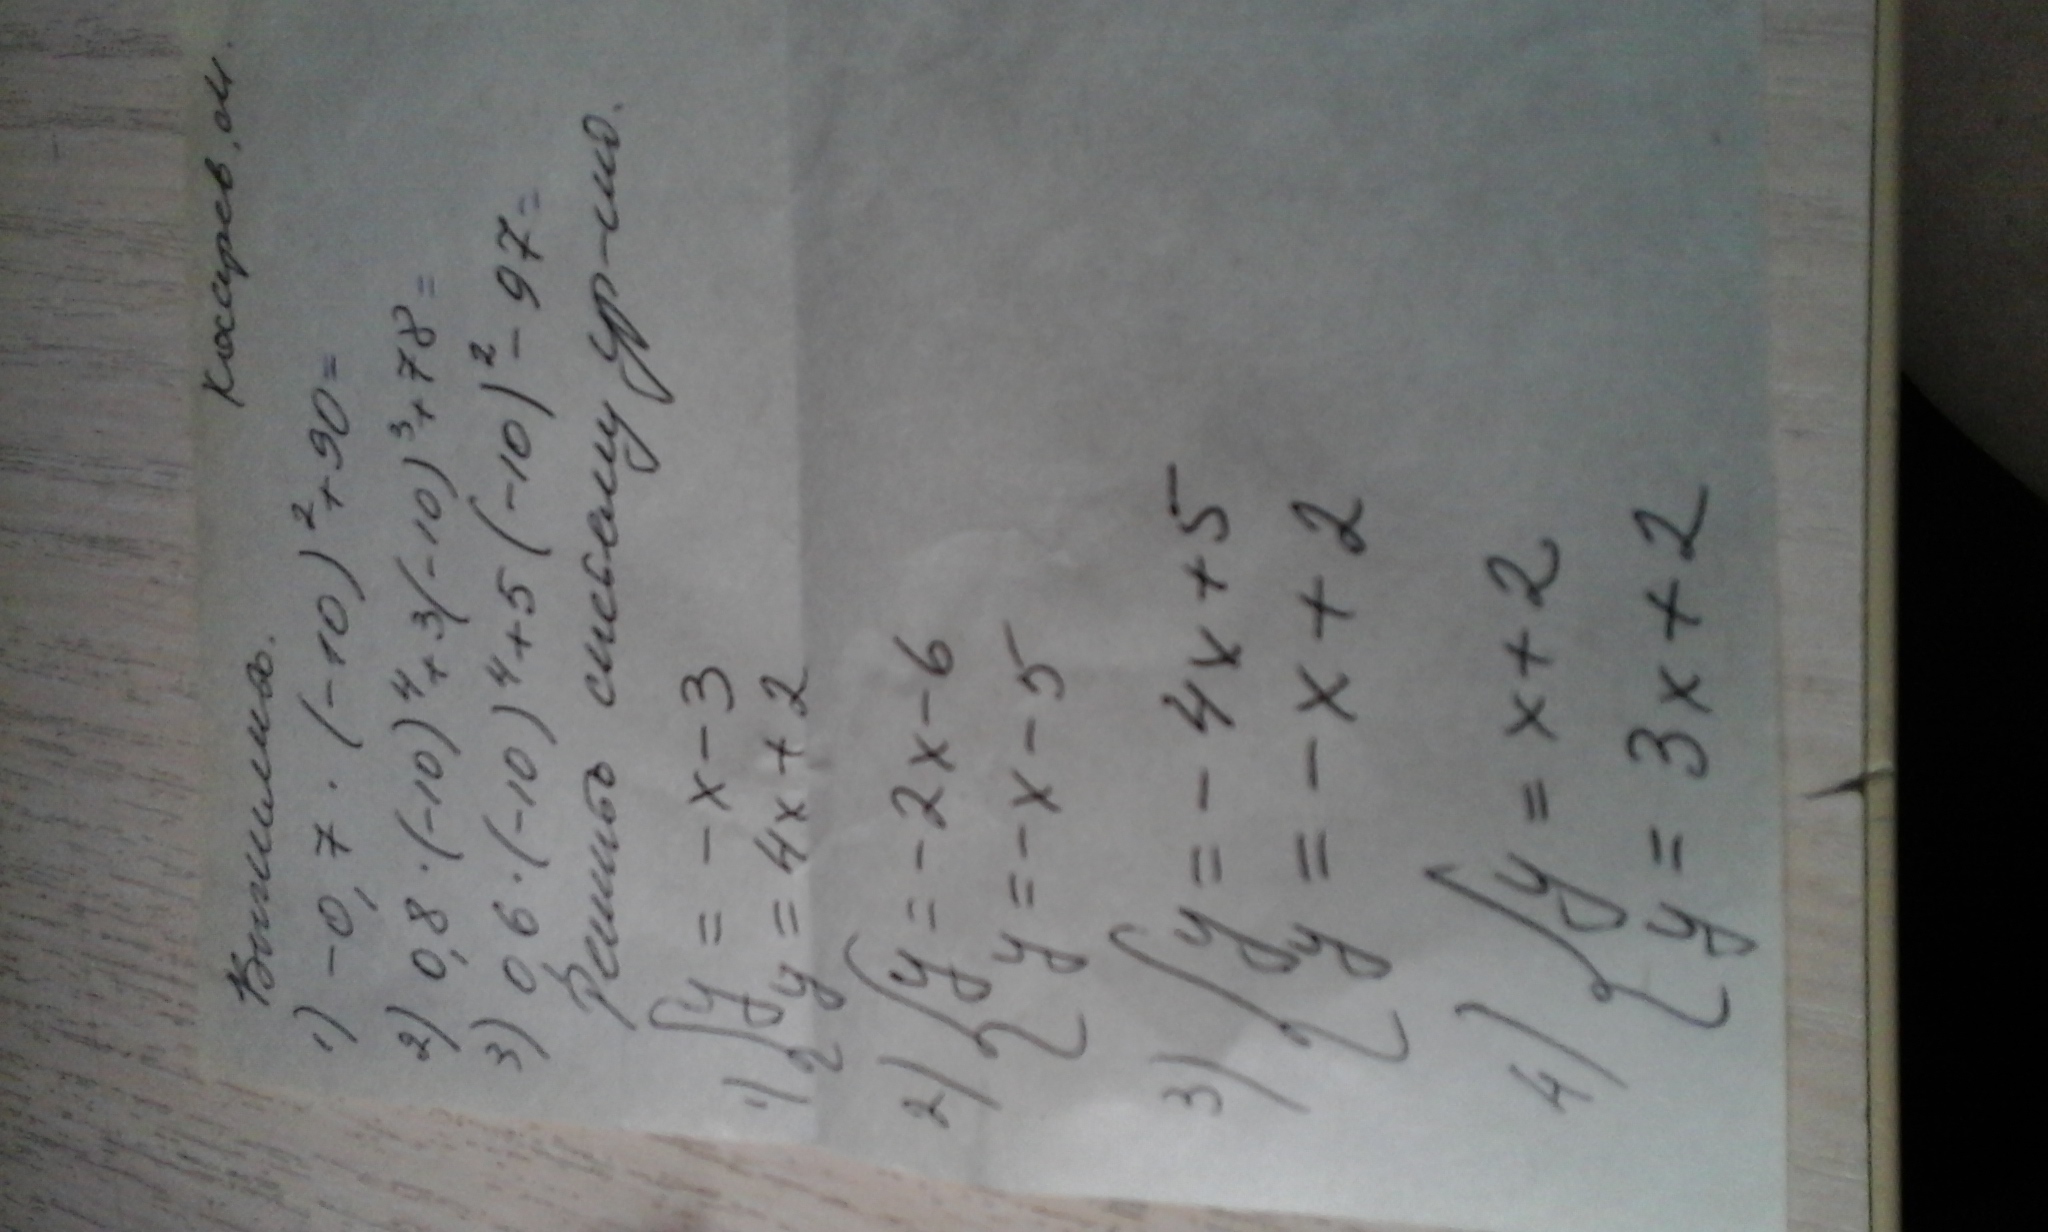 Вычисл.
1) -0,7 · (-10)² + 90 =
2) 0,8 · (-10)⁴ + 3(-10)³ + 78 =
3) 0 6 · (-10)⁴ + 5 (-10)² - 97 =
Решить систему ур-ию.
1) { y = -x - 3
y = 4x + 2
2) { y = -2x - 6
y = -x - 5
3) { y = -4x + 5
y = -x + 2
4) { y = x + 2
y = 3x + 2